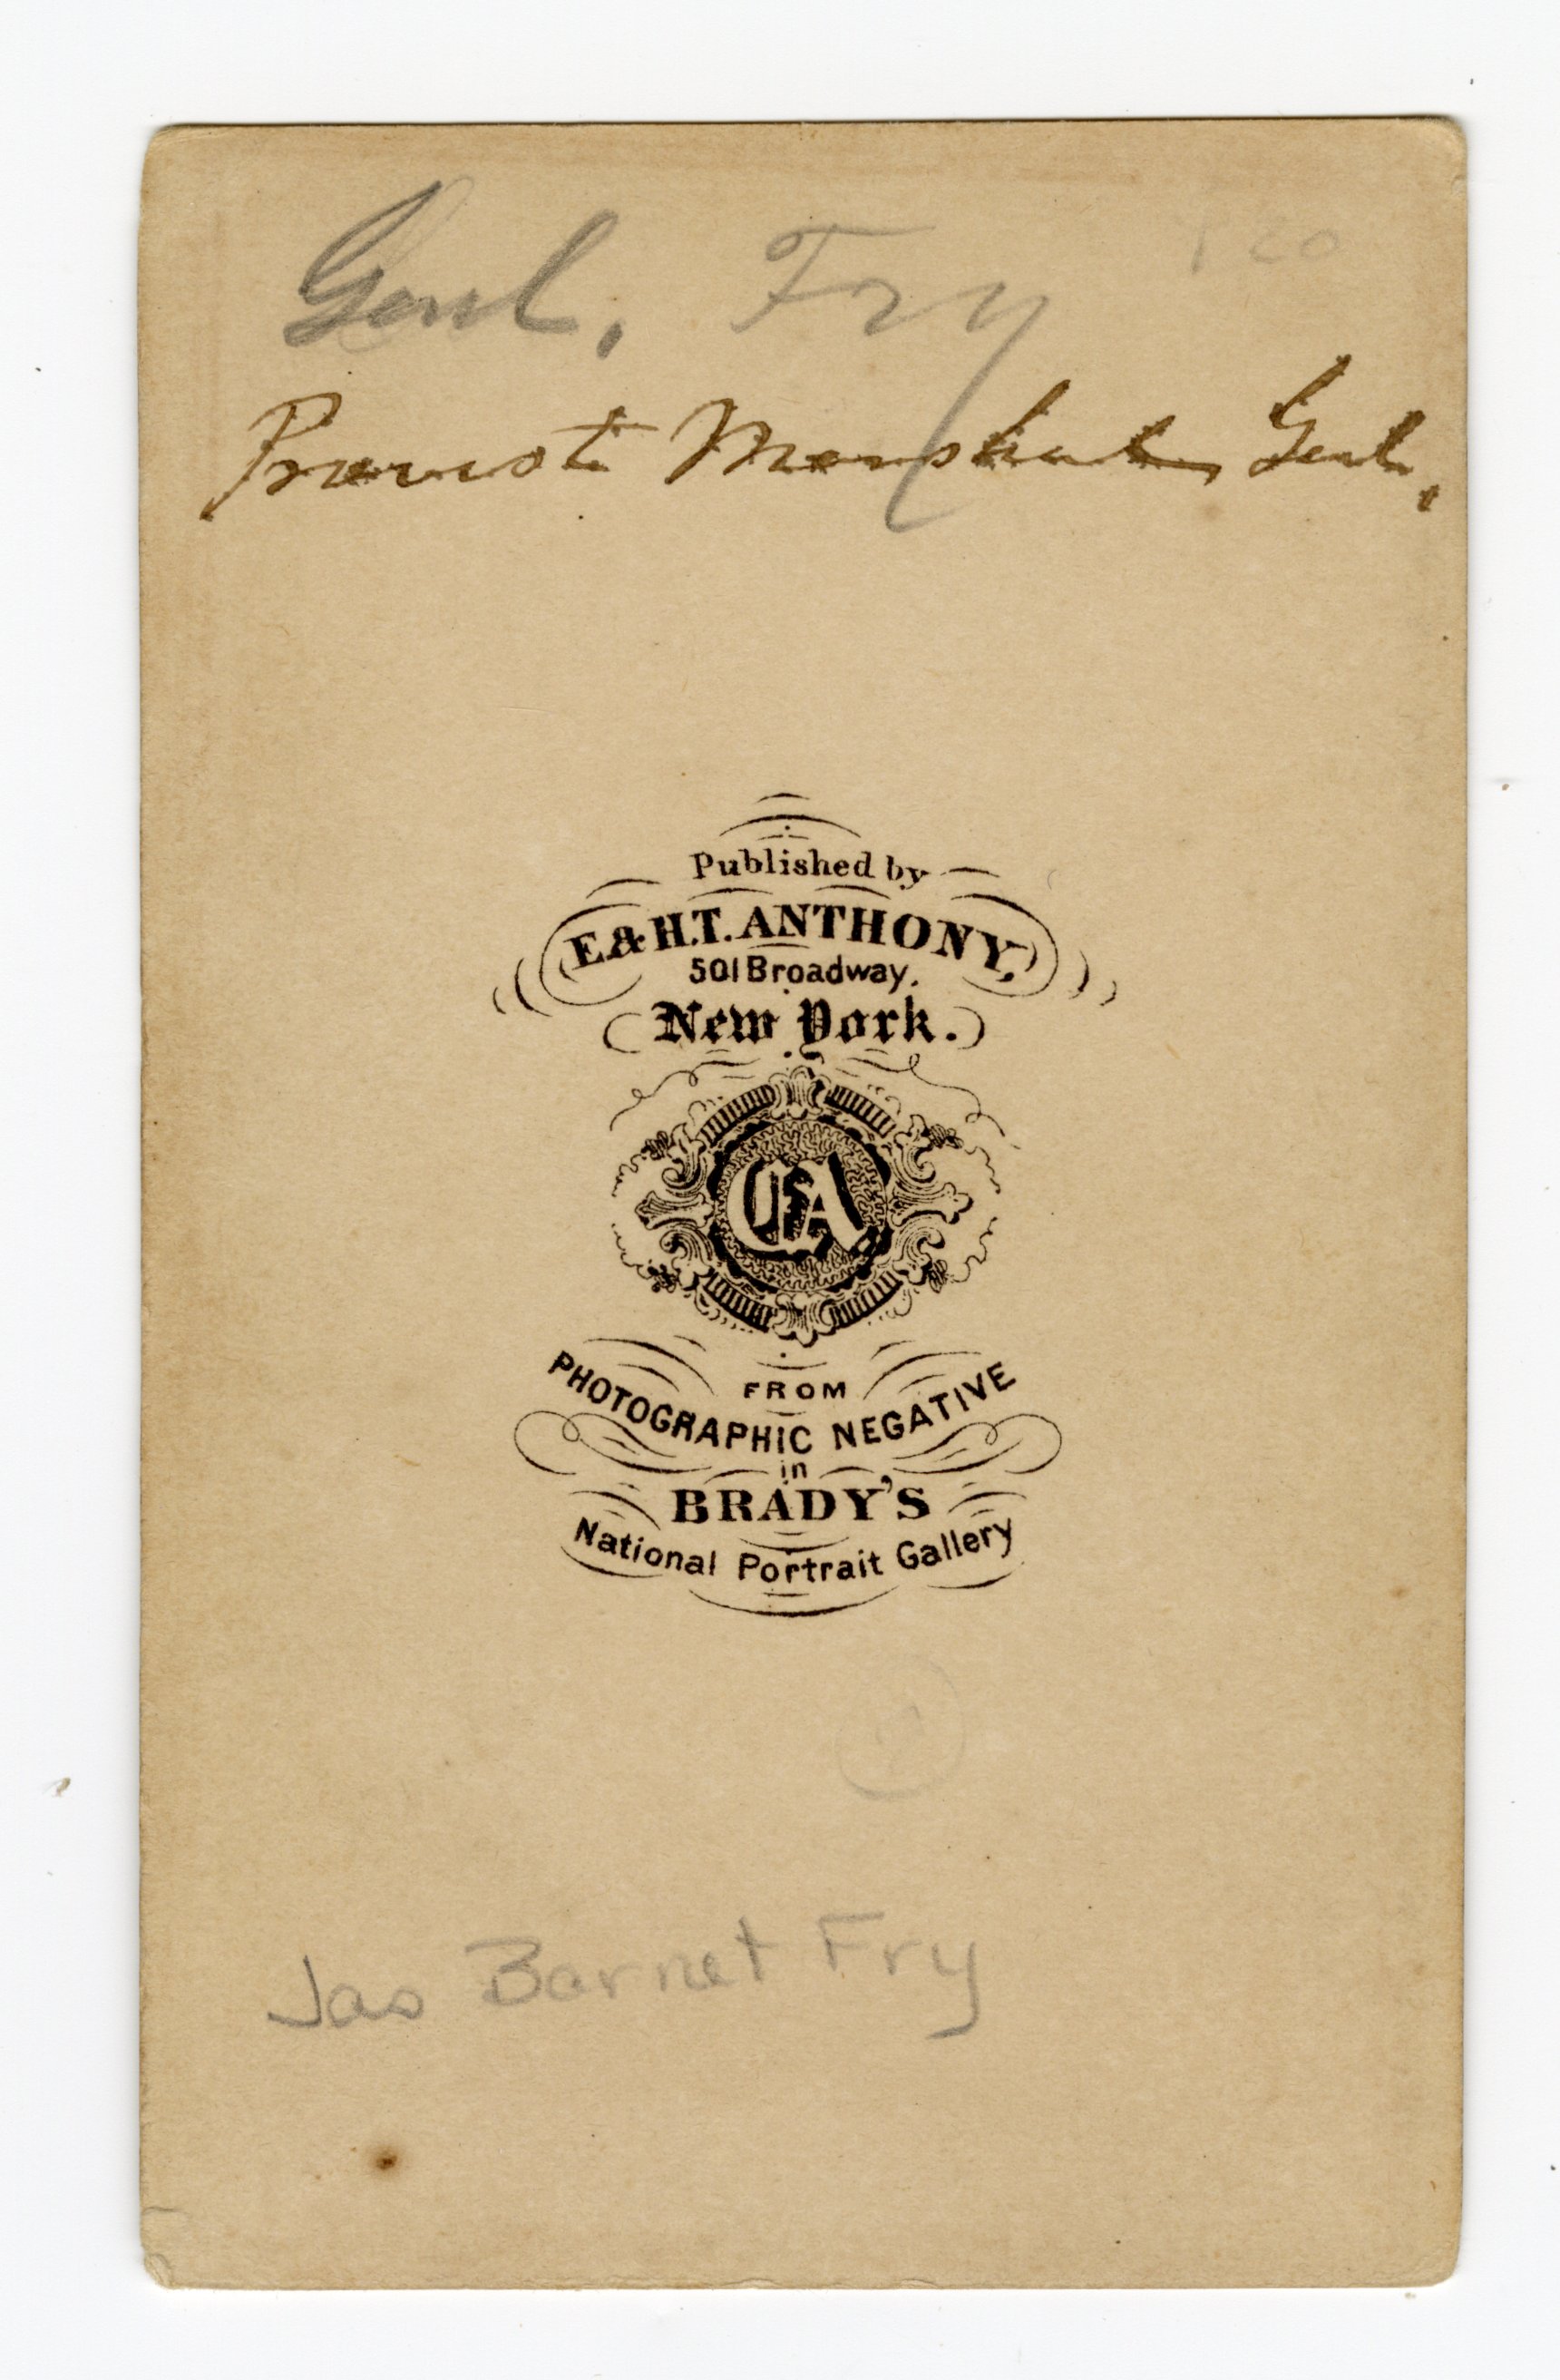 Genl. Fry
Provost Marshal Genl.
Published by
E. & H.T. ANTHONY,
501 Broadway.
New York.
EA
FROM
PHOTOGRAPHIC NEGATIVE
in
BRADY'S
National Portrait Gallery
Jas Barnet Fry